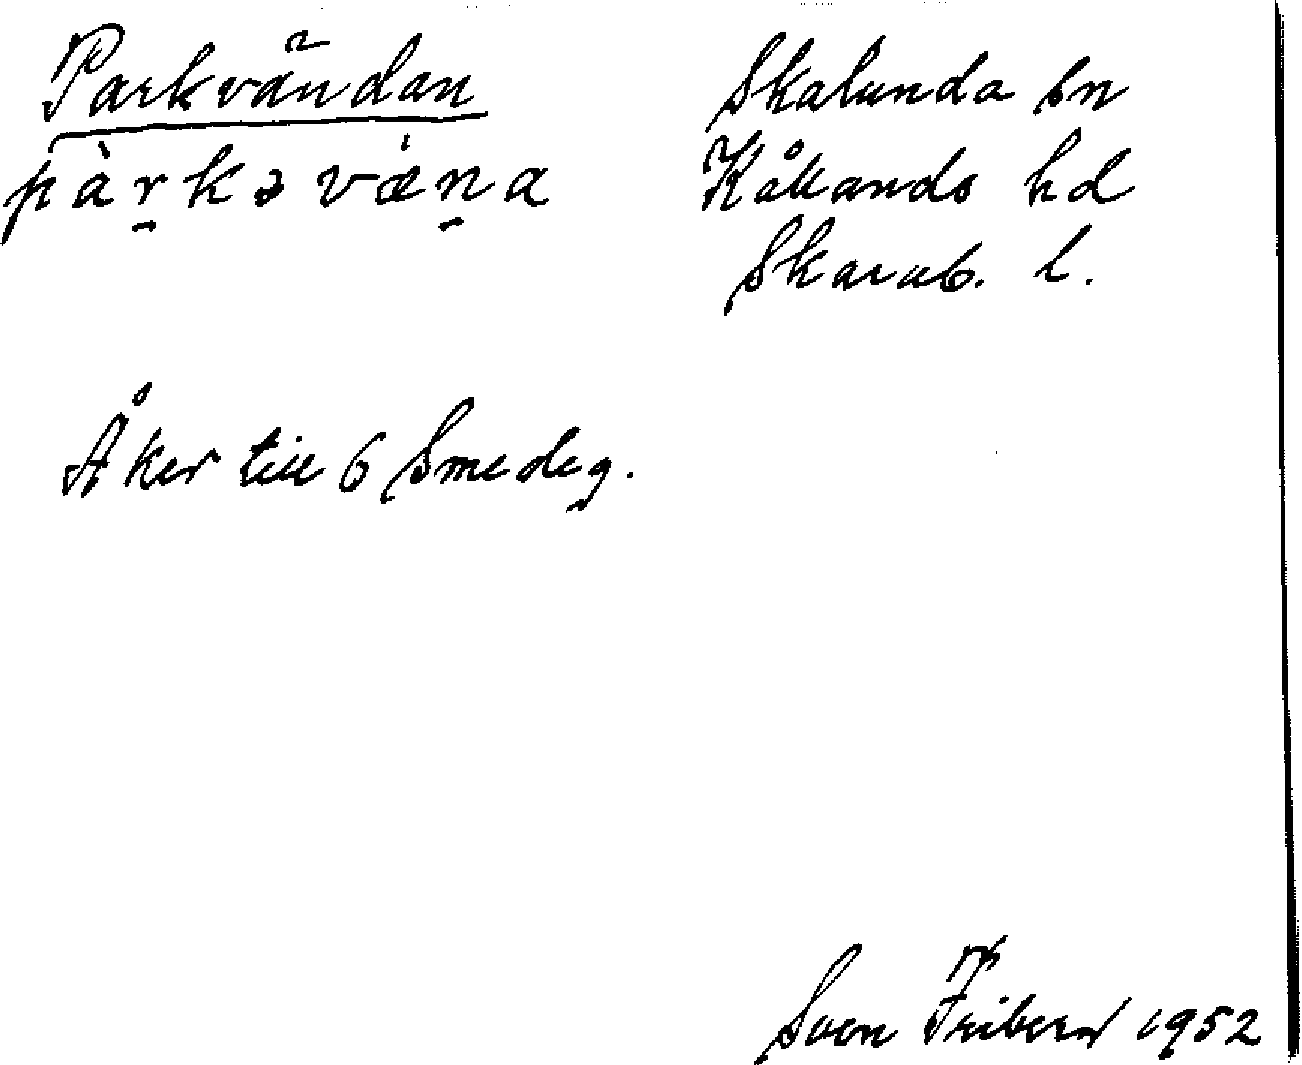 Parkvändan
Skalunda sn
pàrkəvǽna
Kållands hd
Skarab. l.
Åker till 6 Smedeg.
Sven Friberg 1952